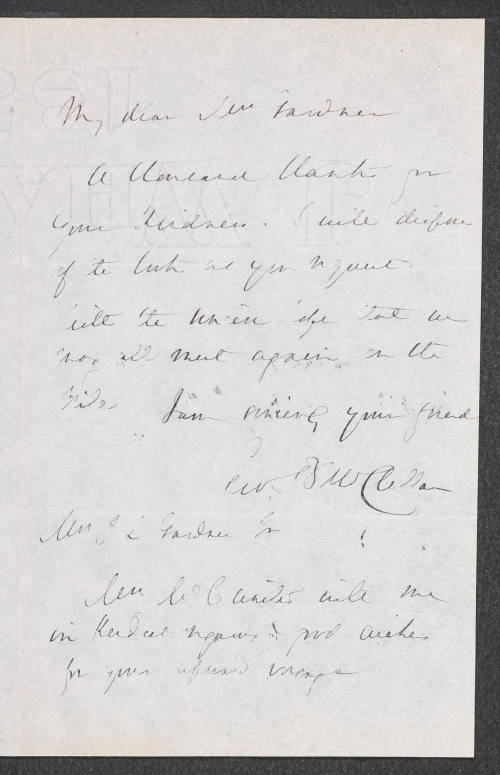 My dear Mrs Gardner
A thousand thanks for
your kindness. I will dispose
of the book as you request.
With the sincere hope that we
may all meet again on the
Nile I am sincerely your friend
Geo. B McClellan
Mrs J L Gardner Jr
Mrs McC unites with me
in kindest regards & good wishes
for your voyage